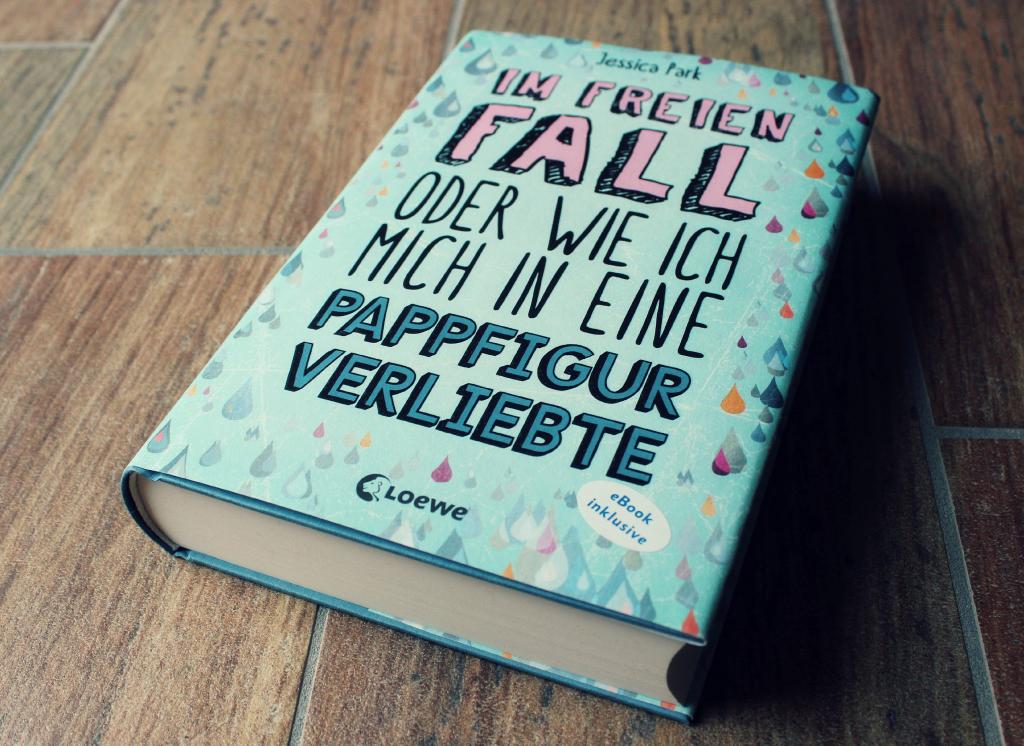 Jessica Park
IM FREIEN
FALL
ODER WIE ICH
MICH IN EINE
PAPPFIGUR
VERLIEBTE
LOEWE
eBook
inklusive